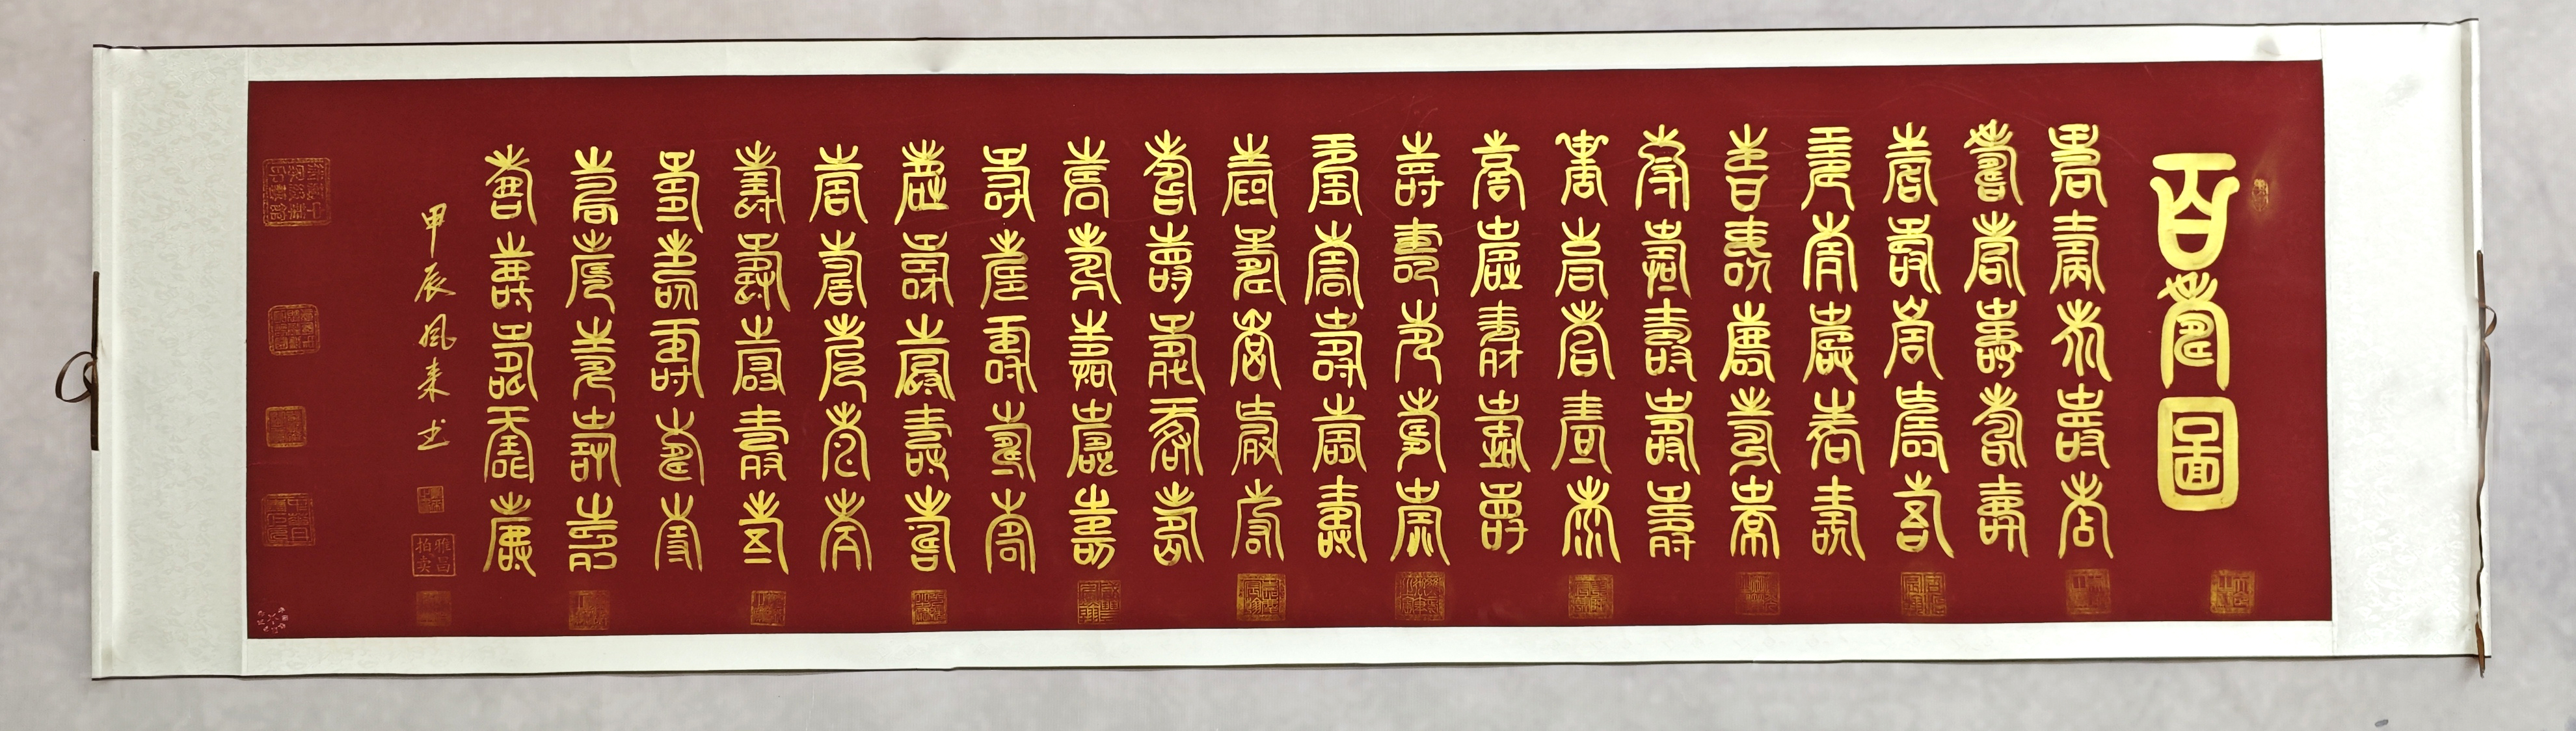 百壽圖
壽壽壽壽壽
壽壽壽壽壽
壽壽壽壽壽
壽壽壽壽壽
壽壽壽壽壽
壽壽壽壽壽
壽壽壽壽壽
壽壽壽壽壽
壽壽壽壽壽
壽壽壽壽壽
壽壽壽壽壽
壽壽壽壽壽
壽壽壽壽壽
壽壽壽壽壽
壽壽壽壽壽
壽壽壽壽壽
壽壽壽壽壽
壽壽壽壽壽
壽壽壽壽壽
壽壽壽壽壽
甲辰風來书
雅昌拍卖